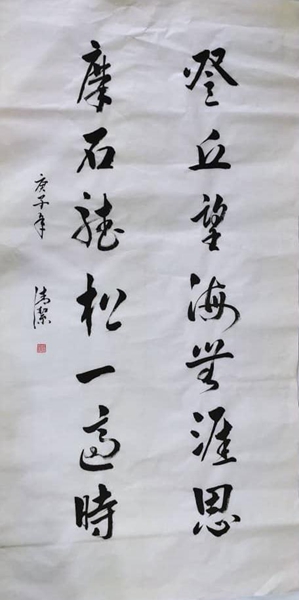 登丘望海無涯思
摩石聽松一適時
庚子年 清潔